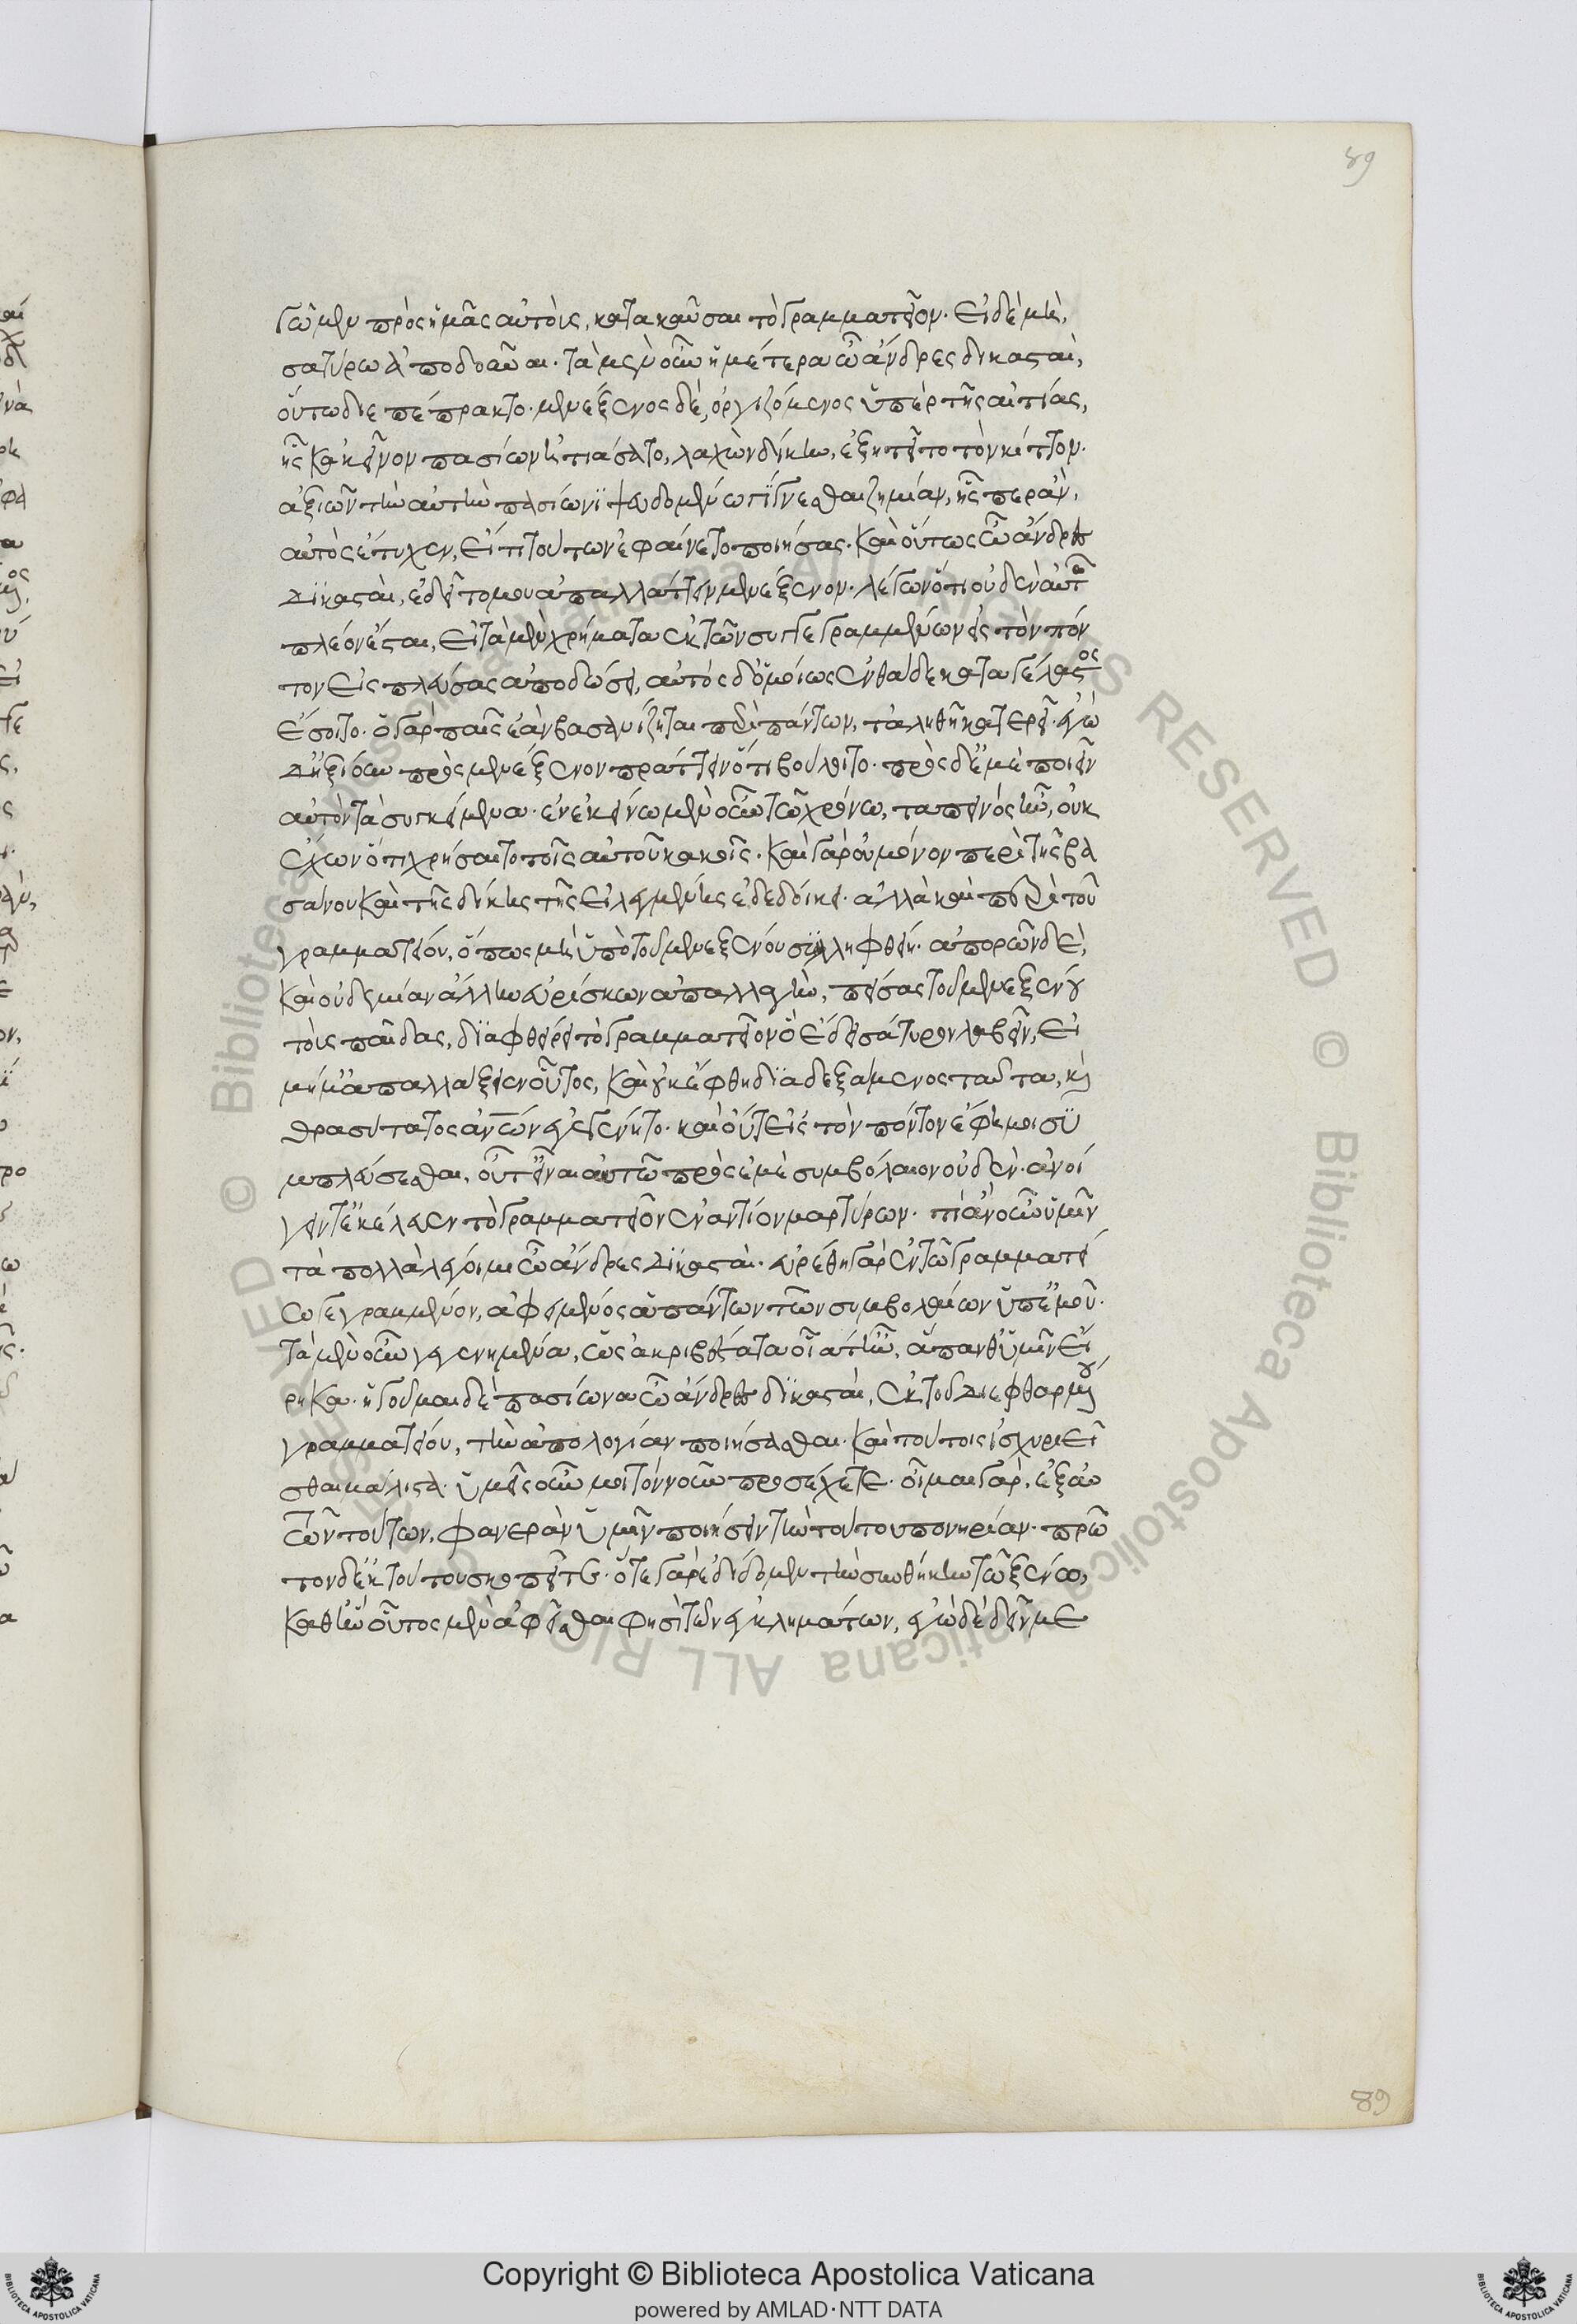 89
γῶμεν πρὸς ἡμᾶς αὐτοὺς, κατακαῦσαι τὸ γραμματεῖον· εἰ δὲ μὴ,
σατύρω ἀποδοῦναι. τὰ μὲν οὖν ἡμέτερα ὦ ἄνδρες δικασταὶ,
οὕτω διεπέπρακτο· μενέξενος δὲ, ὀργιζόμενος ὑπὲρ τῆς αἰτίας,
ἧς κἀκεῖνον πασίων ἠτιάσατο, λαχὼν δίκην, ἐξητεῖτο τὸν κίττον·
ἀξιῶν τὴν αὐτὴν πασίωνι ψευδομένω γίγνεσθαι ζημίαν, ἧσπερ ἂν,
αὐτὸς ἐτύχεν, εἴ τι τούτων ἐφαίνετο ποιήσας. καὶ οὕτως ὦ ἄνδρες
δικασταὶ, ἐδεῖτό μου ἀπαλλάττειν μενέξενον· λέγων ὅτι οὐδὲν αὐτῶ
πλέον ἔσται, εἰ τὰ μὲν χρήματα ἐκ τῶν συγγεγραμμένων εἰς τὸν πόν
τον εἰσπλεύσας ἀποδώσει, αὐτὸς δ' ὁμοίως ἐνθάδε καταγέλαστος
ἔσοιτο. ὁ γὰρ παῖς ἐὰν βασανίζηται περὶ πάντων, τἀληθῆ κατερεῖ· ἐγὼ
δ' ἠξίουν πρὸς μενέξενον πράττειν ὅτι βούλοιτο· πρὸς δ' ἐμὲ ποιεῖν
αὐτὸν τὰ συγκείμενα. ἐν ἐκείνω μὲν οὖν τῶ χρόνω, ταπεινὸς ἦν, οὐκ
ἔχων ὅτι χρήσαιτο τοῖς αὑτοῦ κακοῖς. καὶ γὰρ οὐ μόνον περὶ τῆς βα
σάνου καὶ τῆς δίκης τῆς εἰλεγμένης ἐδεδοίκει· ἀλλὰ καὶ περὶ τοῦ
γραμματείου, ὅπως μὴ ὑπὸ τοῦ μενεξένου συλληφθείη. ἀπορῶν δὲ,
καὶ οὐδεμίαν ἄλλην εὑρίσκων ἀπαλλαγὴν, πείσας τοῦ μενεξένου
τοὺς παῖδας, διαφθείρει τὸ γραμματεῖον ὃ ἔδει σάτυρον λαβεῖν, εἰ
μή μ' ἀπαλλάξειεν οὗτος, καὶ οὐκ ἔφθη διαδεξάμενος ταῦτα, καὶ
θρασύτατος ἁπάντων ἐγεγένητο. καὶ οὔτ' εἰς τὸν πόντον ἔφη μοι συ
μπλεύσεσθαι, οὔτ' εἶναι αὐτῶ πρὸς ἐμὲ συμβόλαιον οὐδὲν· ἀνοί
γειν τ' ἐκέλευεν τὸ γραμματεῖον ἐναντίον μαρτύρων. τί ἂν οὖν ὑμῖν
τὰ πολλὰ λέγοιμι ὦ ἄνδρες δικασταὶ. εὑρέθη γὰρ ἐν τῶ γραμματεί
ω γεγραμμένον, ἀφειμένος ἁπάντων τῶν συμβολαίων ὑπ' ἐμοῦ.
τὰ μὲν οὖν γεγενημένα, ὡς ἀκριβέστατα οἷός τ' ἦν, ἅπανθ' ὑμῖν εἴ
ρηκα. ἡγοῦμαι δὲ πασίωνα ὦ ἄνδρες δικασταὶ, ἐκ τοῦ διεφθαρμένου
γραμματείου, τὴν ἀπολογίαν ποιήσασθαι. καὶ τούτοις ἰσχυριεῖ
σθαι μάλιστα. ὑμεῖς οὖν μοι τὸν νοῦν προσέχετε. οἶμαι γὰρ, ἐξ αὐ
τῶν τούτων, φανερὰν ὑμῖν ποιήσειν τὴν τούτου πονηρίαν. πρῶ
τον δ' ἐκ τούτου σκοπεῖτε. ὅτε γὰρ ἐδίδομεν τὴν συνθήκην τῶ ξένω,
καθ' ἣν οὗτος μὲν ἀφεῖσθαι φησὶ τῶν ἐγκλημάτων, ἐγὼ δὲ δεῖν με
89
Copyright © Biblioteca Apostolica Vaticana
powered by AMLAD·NTT DATA